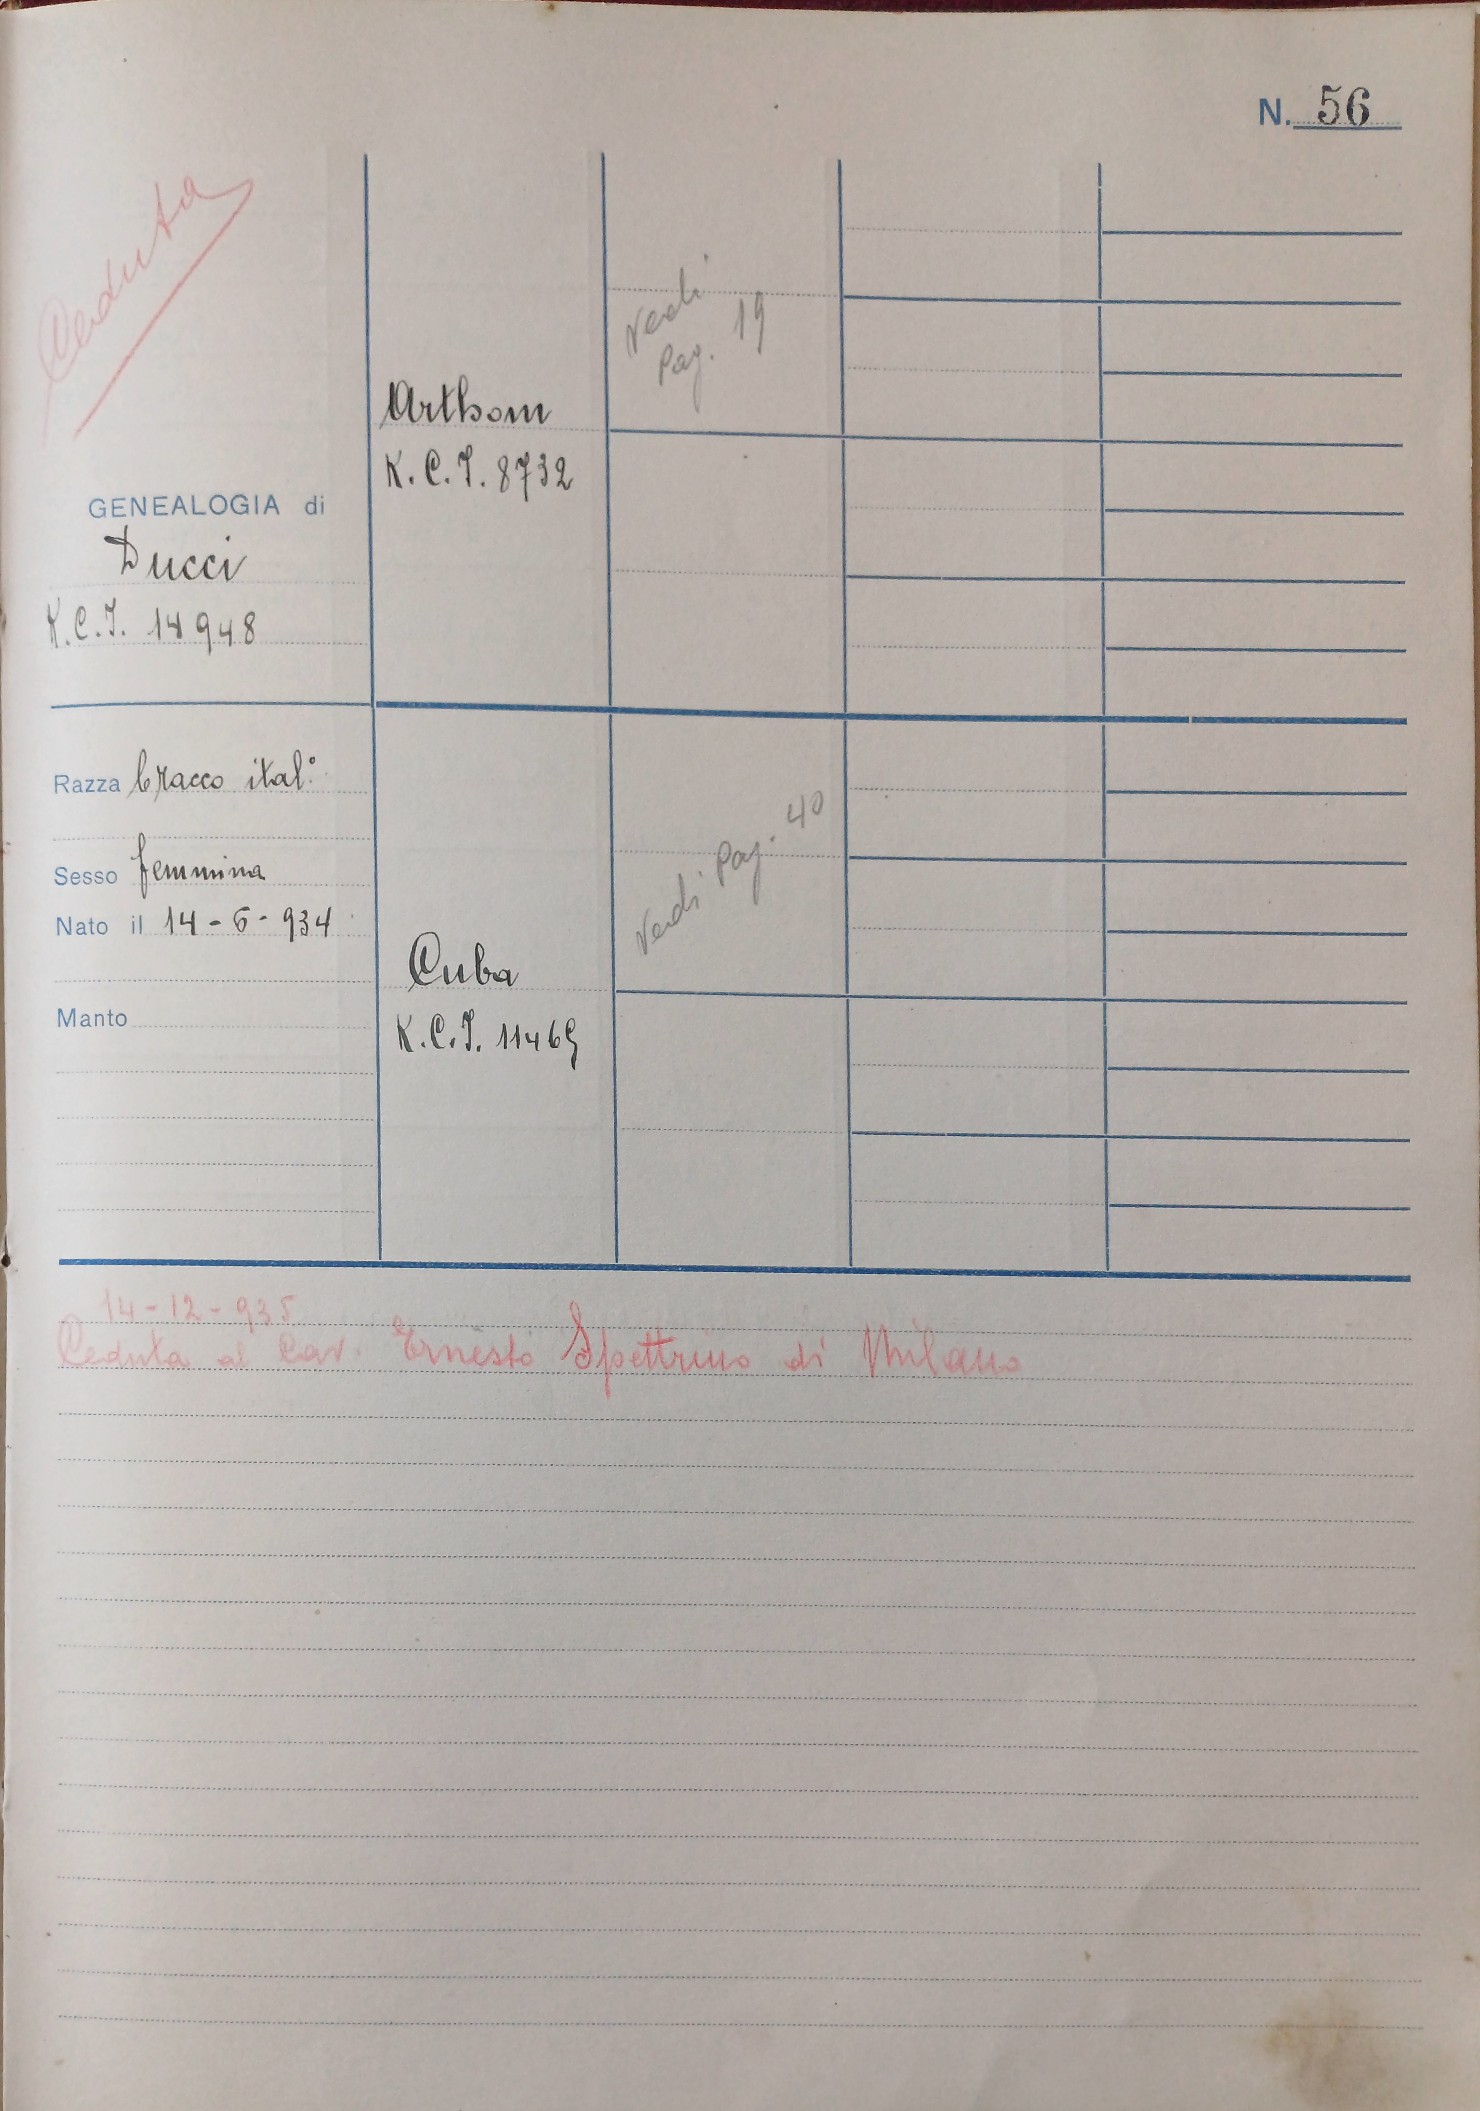 N. 56
Ceduta
GENEALOGIA di
Ducci
K.C.I. 14948
Razza bracco ital°
Sesso femmina
Nato il 14-6-934
Manto
Arthom
K.C.I. 8732
Cuba
K.C.I. 11465
Verdi
Pag. 19
Verdi Pag. 40
14-12-935
Ceduta al Cav. Ernesto Spettrino di Milano